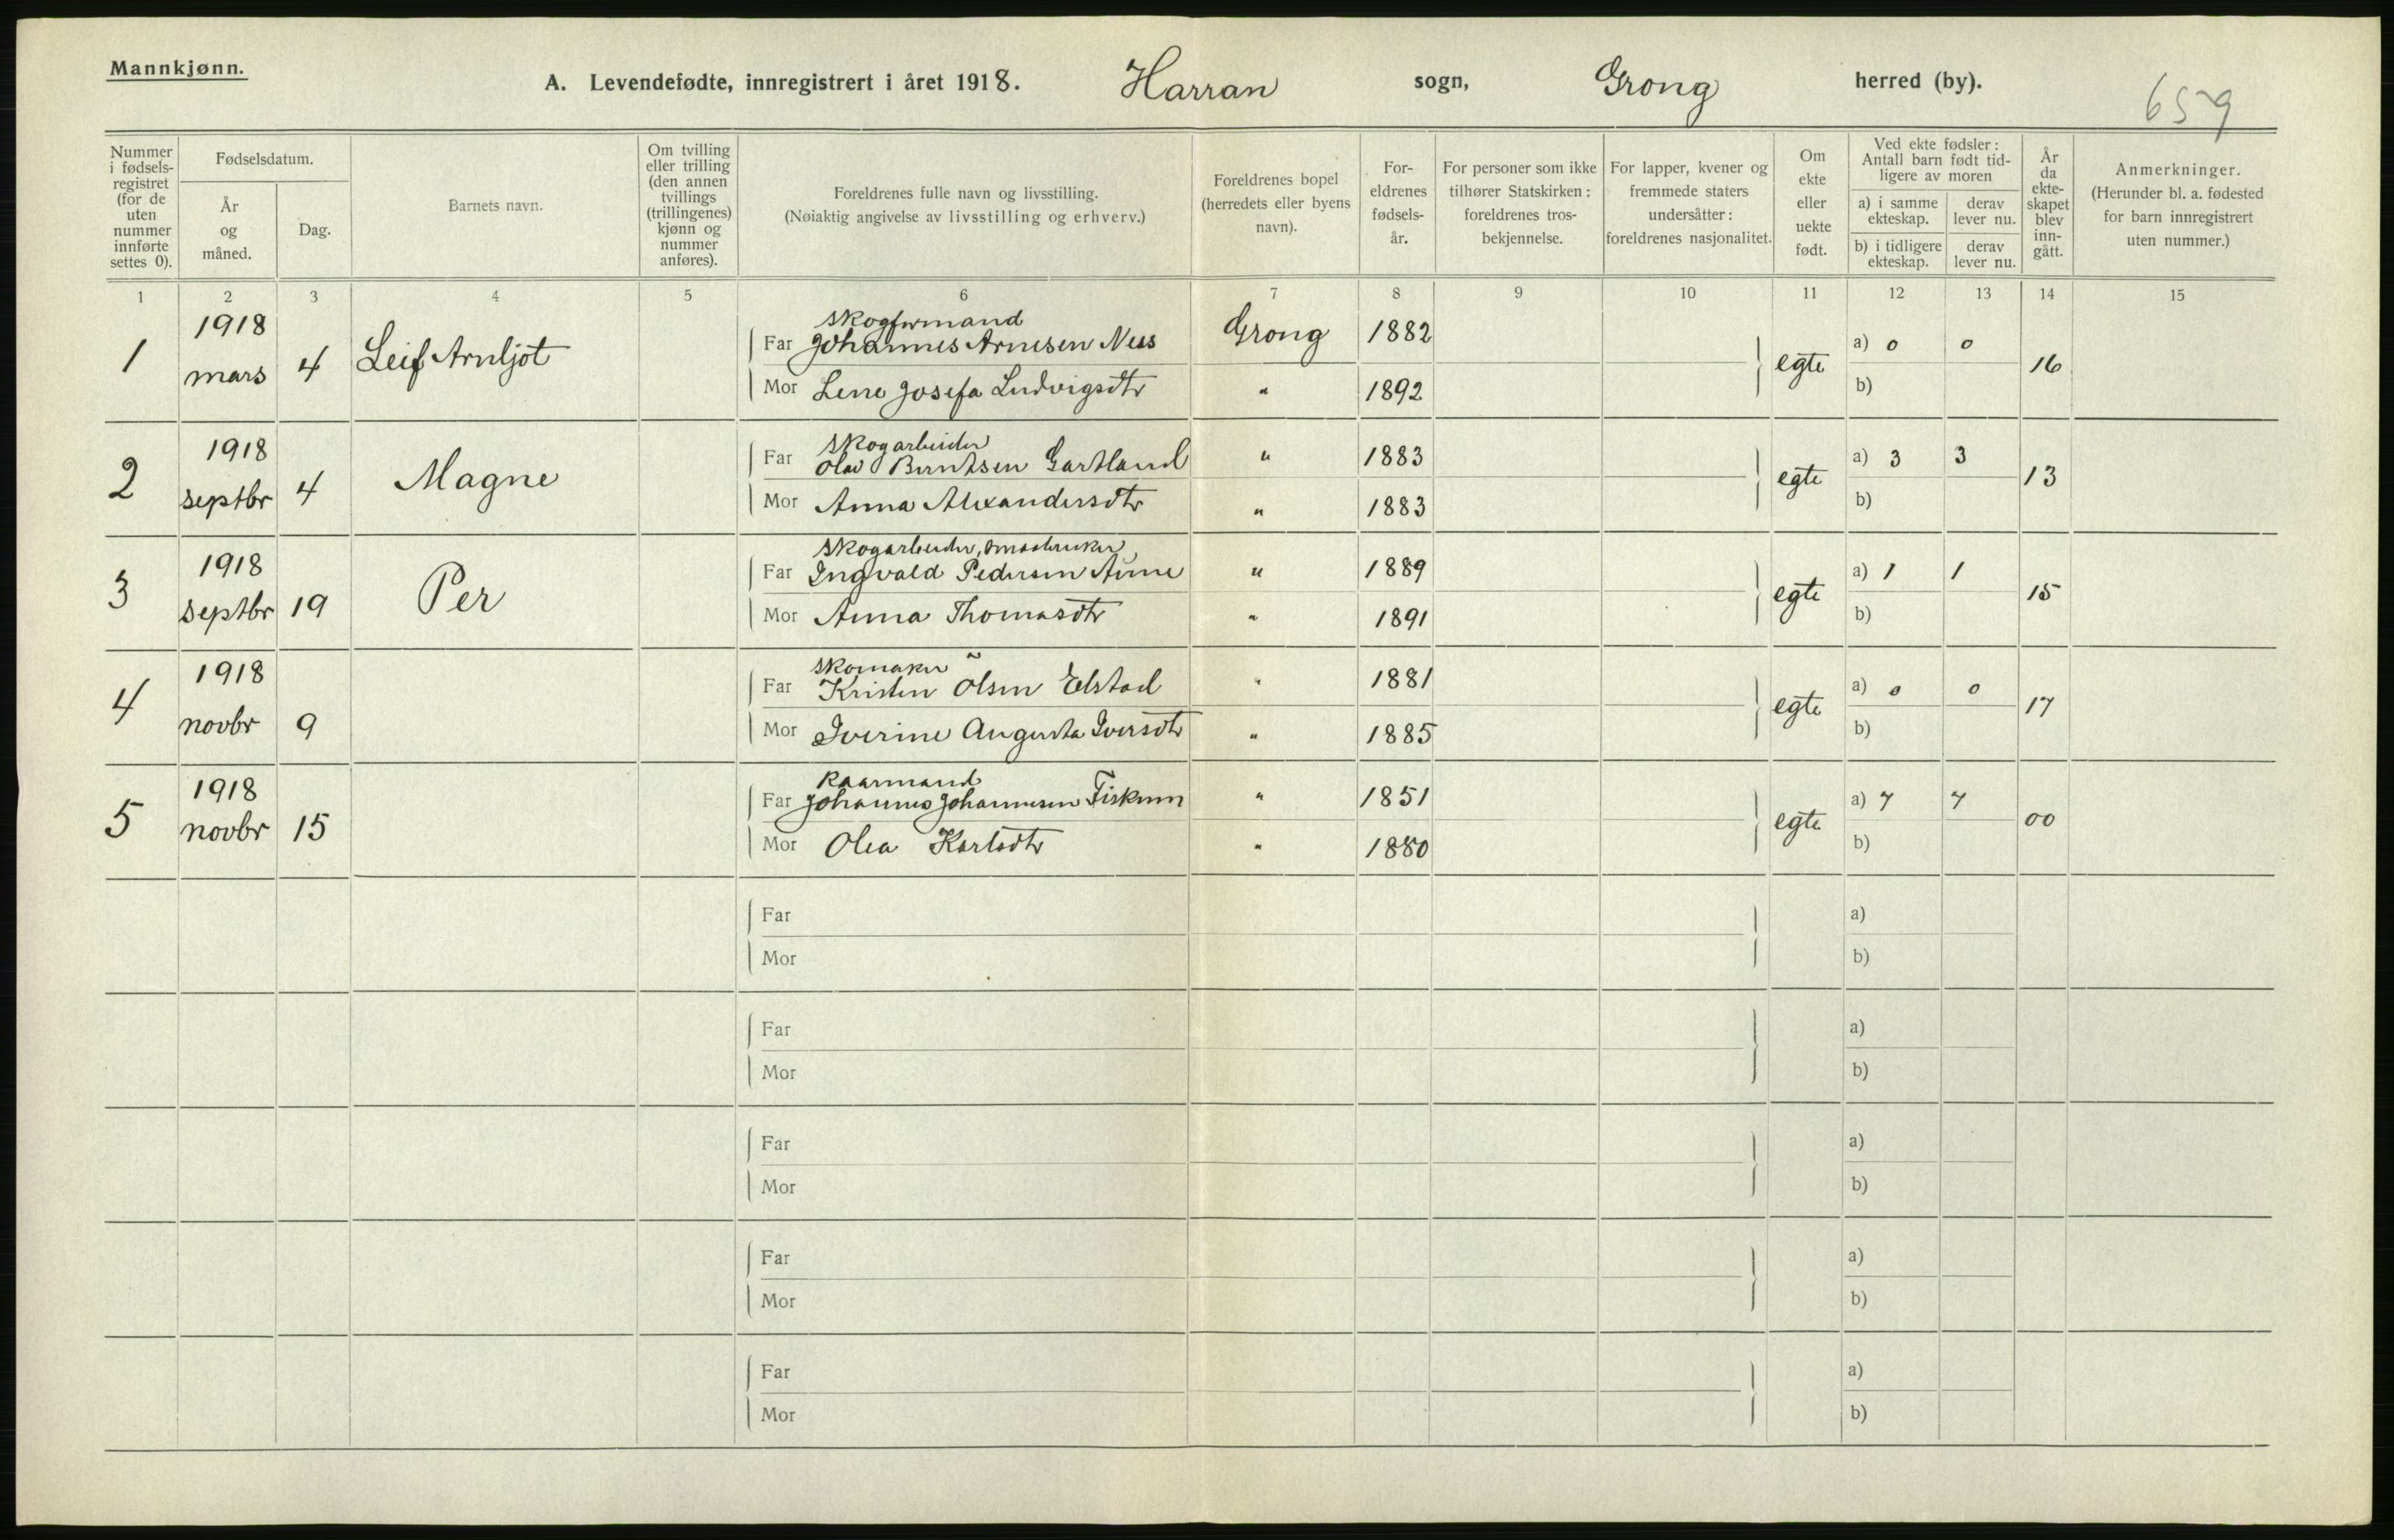 Mannkjønn.
A. Levendefødte, innregistrert i året 1918. Harran sogn, Grong herred (by).
659
Nummer i fødsels-registret (for de uten nummer innførte settes 0).
Fødselsdatum.
År og måned.
Dag.
Barnets navn.
Om tvilling eller trilling (den annen tvillings (trillingenes) kjønn og nummer anføres).
Foreldrenes fulle navn og livsstilling.
(Nøiaktig angivelse av livsstilling og erhverv.)
Foreldrenes bopel (herredets eller byens navn).
For-eldrenes fødsels-år.
For personer som ikke tilhører Statskirken: foreldrenes tros-bekjennelse.
For lapper, kvener og fremmede staters undersåtter: foreldrenes nasjonalitet.
Om ekte eller uekte født.
Ved ekte fødsler: Antall barn født tid-ligere av moren
a) i samme ekteskap.
derav lever nu.
b) i tidligere ekteskap.
derav lever nu.
År da ekte-skapet blev inn-gått.
Anmerkninger.
(Herunder bl. a. fødested for barn innregistrert uten nummer.)
1 2 3 4 5 6 7 8 9 10 11 12 13 14 15
1918 Skogformand
1 mars 4 Leif Arnljot Far Johannes Arnesen Ness Grong 1882 egte a) 0 0 16
Mor Lene Josefa Ludvigsdtr " 1892 b)
1918 Skogarbeider
2 septbr 4 Magne Far Olav Berntsen Gartland " 1883 egte a) 3 3 13
Mor Anna Alexandersdtr " 1883 b)
1918 Skogarbeider, smaabruker
3 septbr 19 Per Far Ingvald Pedersen Aune " 1889 egte a) 1 1 15
Mor Anna Thomasdtr " 1891 b)
1918 Skomaker
4 novbr 9 Far Kristen Olsen Elstad " 1881 egte a) 0 0 17
Mor Iverine Augusta Iversdtr " 1885 b)
1918 Kaarmand
5 novbr 15 Far Johannes Johannesen Fiskum " 1851 egte a) 7 7 00
Mor Olea Karlsdtr " 1880 b)
Far a)
Mor b)
Far a)
Mor b)
Far a)
Mor b)
Far a)
Mor b)
Far a)
Mor b)